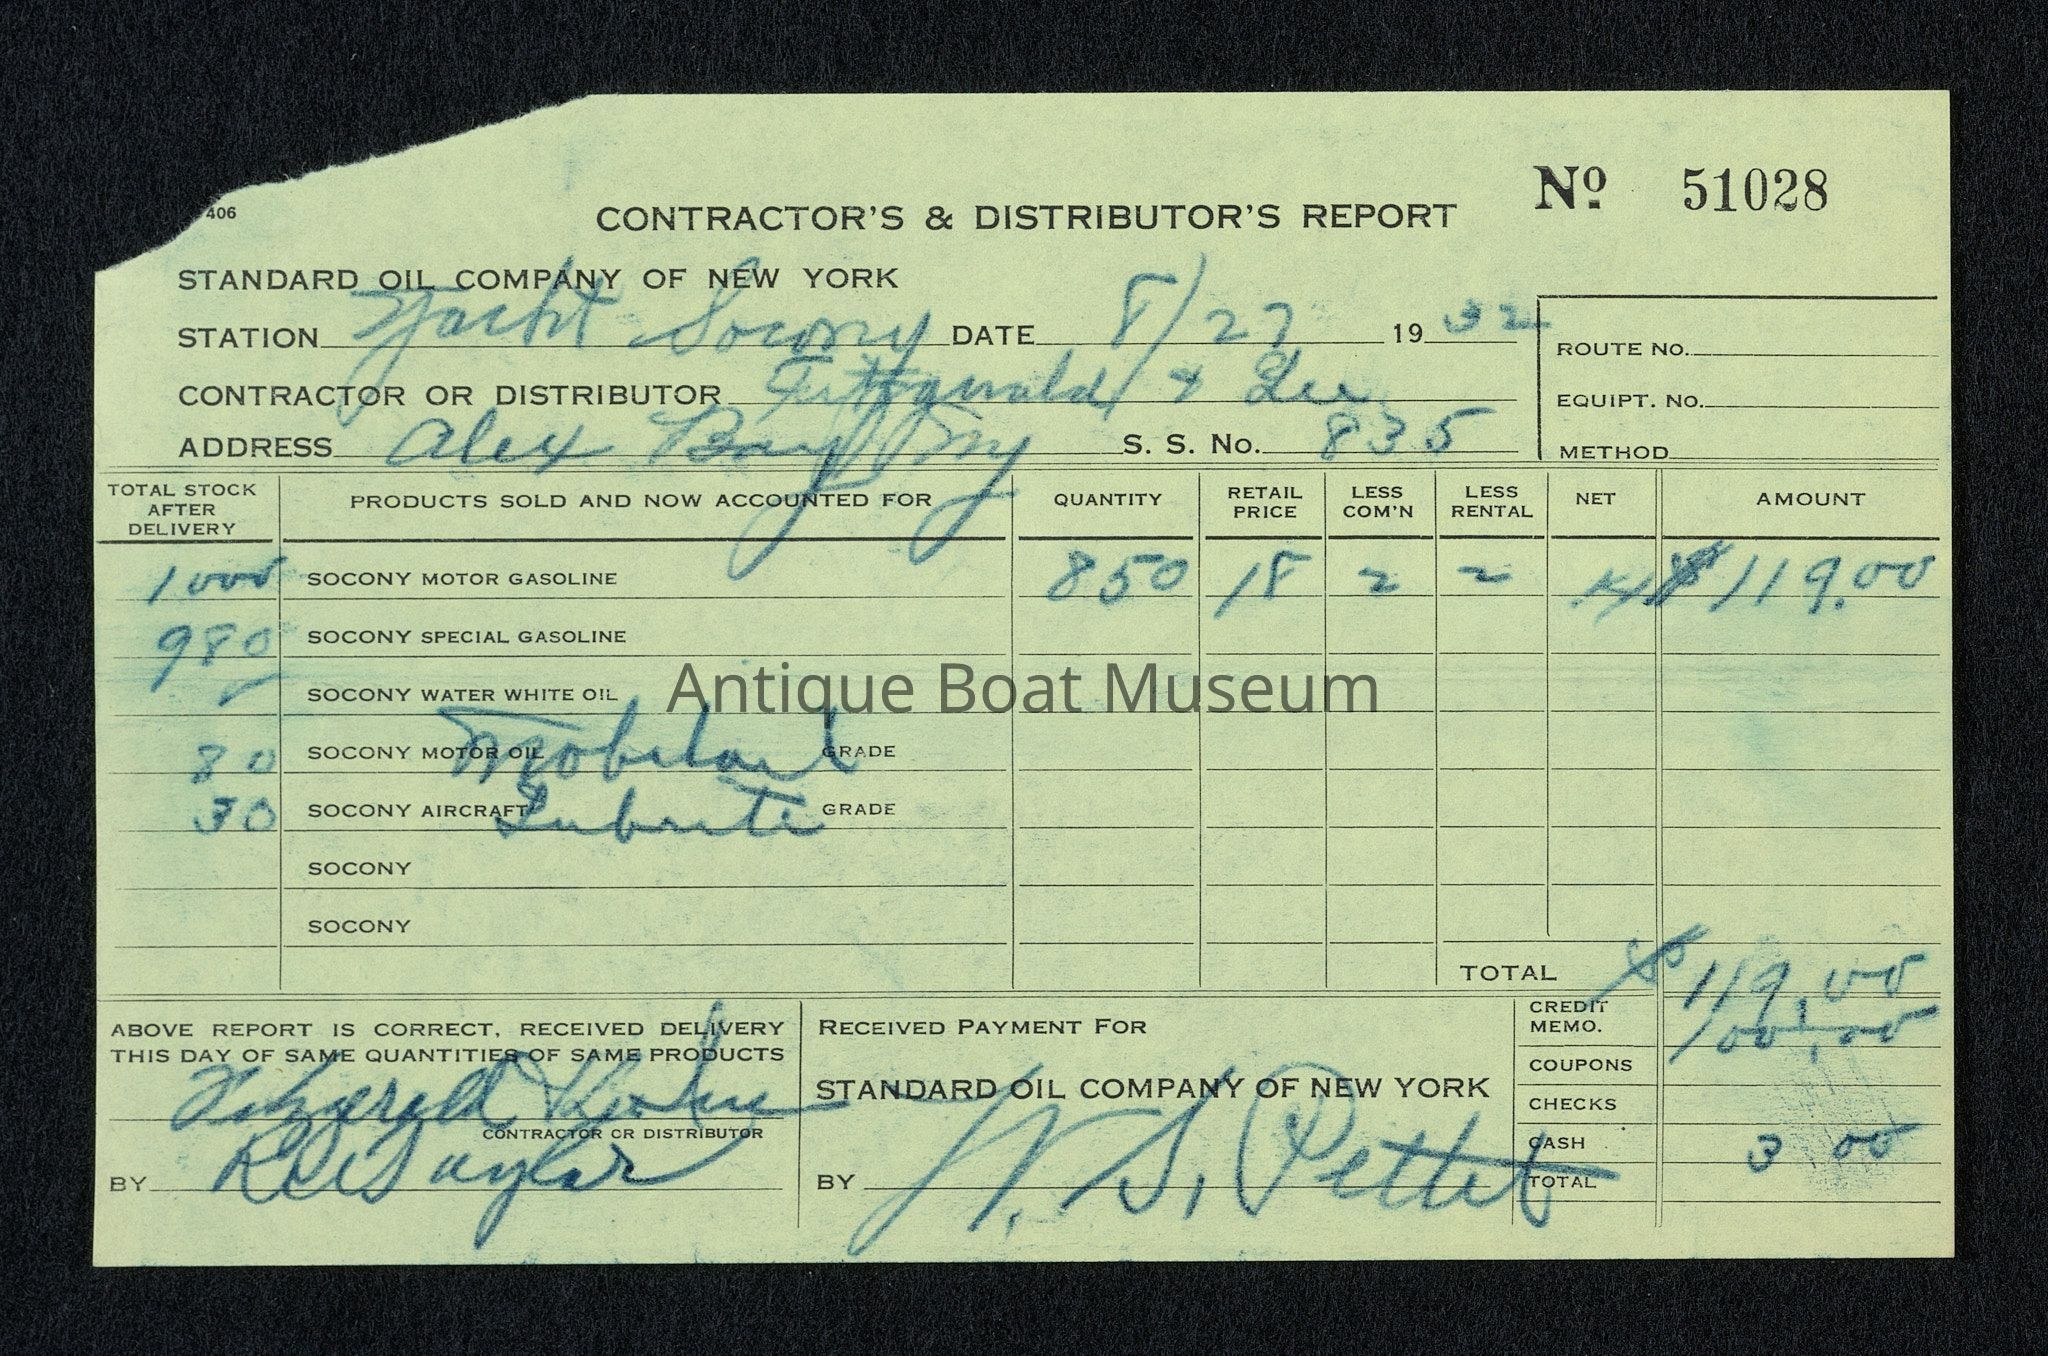 406
CONTRACTOR'S & DISTRIBUTOR'S REPORT
Nº 51028
STANDARD OIL COMPANY OF NEW YORK
STATION Yacht Socony DATE 8/27 1932
ROUTE NO.
CONTRACTOR OR DISTRIBUTOR Fitzgerald & Lee
EQUIPT. NO.
ADDRESS Alex Bay Ny S. S. No. 835
METHOD
TOTAL STOCK AFTER DELIVERY PRODUCTS SOLD AND NOW ACCOUNTED FOR QUANTITY RETAIL PRICE LESS COM'N LESS RENTAL NET AMOUNT
1000 SOCONY MOTOR GASOLINE 850 18 2 2 14 $119.00
980 SOCONY SPECIAL GASOLINE
SOCONY WATER WHITE OIL
Antique Boat Museum
80 SOCONY MOTOR OIL Mobiloil GRADE
30 SOCONY AIRCRAFT Lubrite GRADE
SOCONY
SOCONY
TOTAL $119.00
ABOVE REPORT IS CORRECT, RECEIVED DELIVERY
THIS DAY OF SAME QUANTITIES OF SAME PRODUCTS
Fitzgerald
CONTRACTOR OR DISTRIBUTOR
BY
RECEIVED PAYMENT FOR
STANDARD OIL COMPANY OF NEW YORK
BY W. S. Pettit
CREDIT MEMO. 100.00
COUPONS
CHECKS
CASH 3 00
TOTAL